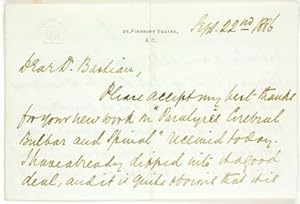 24, FINSBURY SQUARE,
E.C.
Sept. 22nd 1886
Dear Dr. Bastian,
Please accept my best thanks
for your new work on "Paralyses Cerebral
Bulbar and Spinal" received today.
I have already dipped into it a good
deal, and it is quite obvious that it is